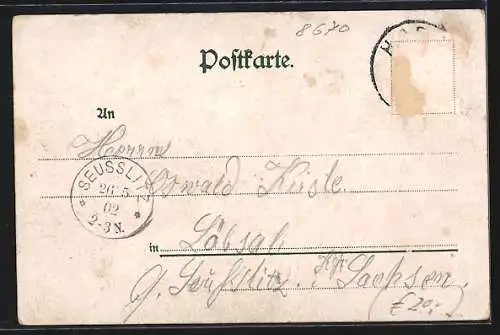 8670
Postkarte.
An
Herrn
SEUSSLITZ
26 5
02
2-3 N.
Oswald Küste.
in Löbsal
b. Seußlitz. Kgr. Sachsen.